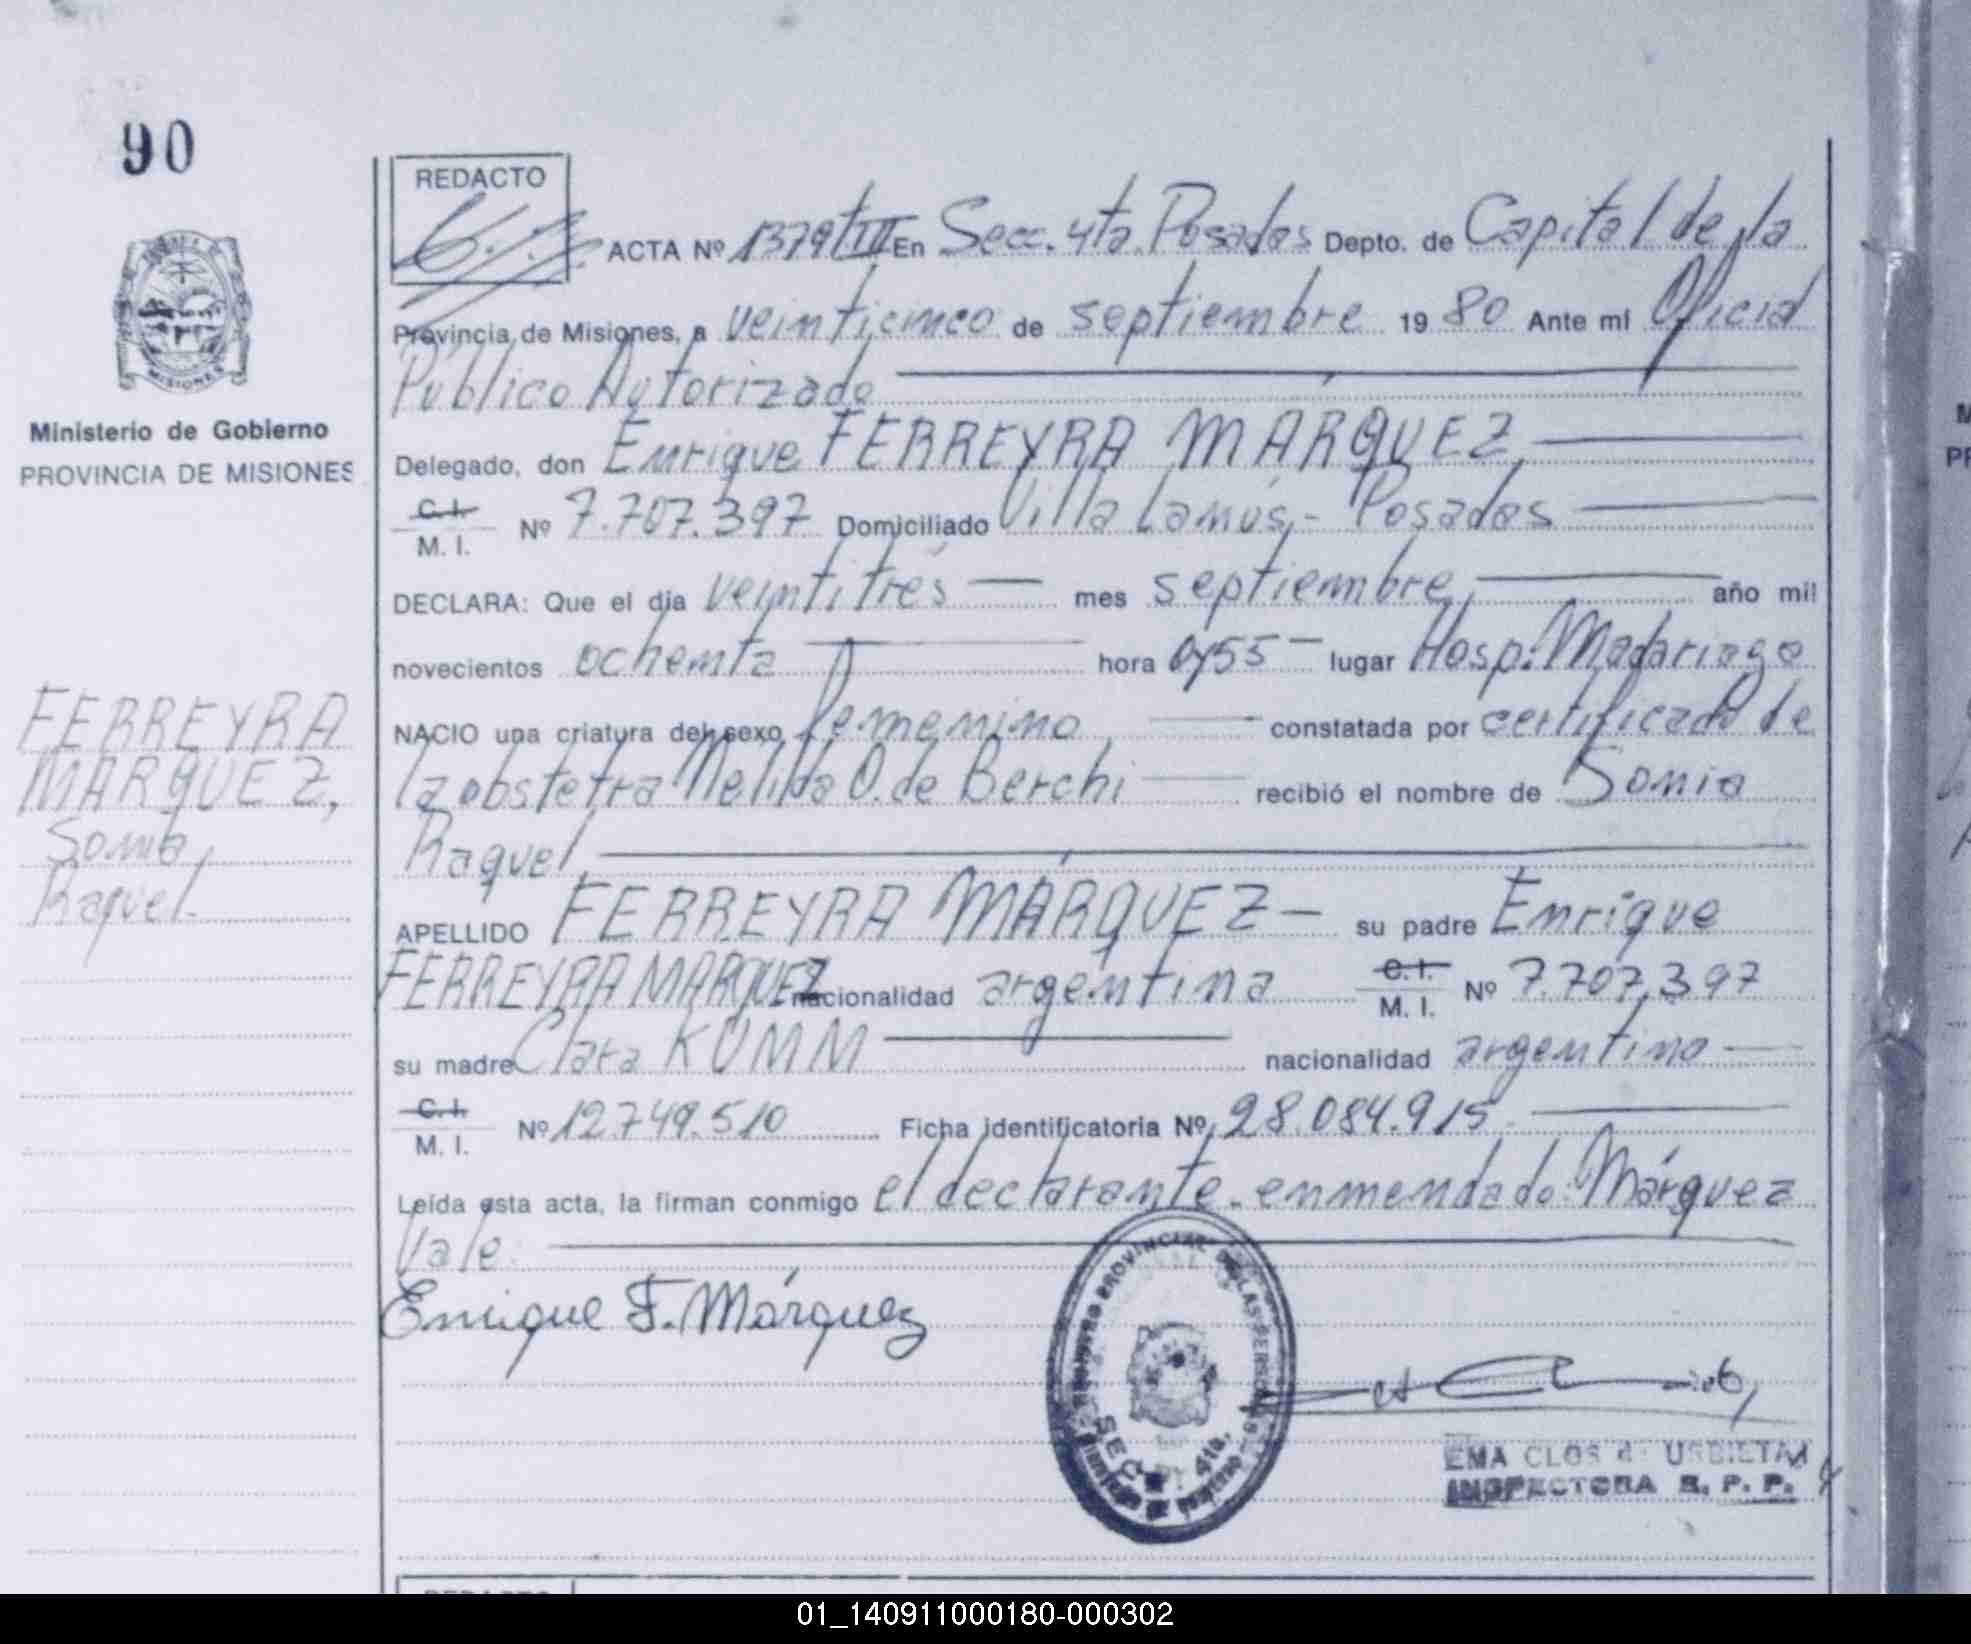 90
REDACTO
ACTA Nº 1379/III En Secc. 4ta. Posadas Depto. de Capital de la
Provincia de Misiones, a veinticinco de septiembre 19 80 Ante mi Oficial
Público Autorizado
Delegado, don Enrique FERREYRA MÁRQUEZ,
C. I.
M. I. Nº 7.707.397 Domiciliado Villa Lanús,- Posadas
DECLARA: Que el día veintitrés mes septiembre, año mil
novecientos ochenta hora 0y55 lugar Hosp. Madariaga
NACIO una criatura del sexo femenino constatada por certificado de
la obstetra Nelida O. de Berchi recibió el nombre de Sonia
Raquel
APELLIDO FERREYRA MÁRQUEZ su padre Enrique
FERREYRA MARQUEZ nacionalidad argentina C. I. M. I. Nº 7.707.397
su madre Clara KUMM nacionalidad argentina
C. I.
M. I. Nº 12.749.510 Ficha identificatoria Nº 28.084.915.
Leída esta acta, la firman conmigo el declarante. enmendado: Márquez
Vale.
Enrique F. Márquez
MISIONES
Ministerio de Gobierno
PROVINCIA DE MISIONES
FERREYRA
MARQUEZ,
Sonia
Raquel
SECC. 4ta.
EMA CLOS de URBIETA
INSPECTORA R. P. P.
REDACTO
01_140911000180-000302